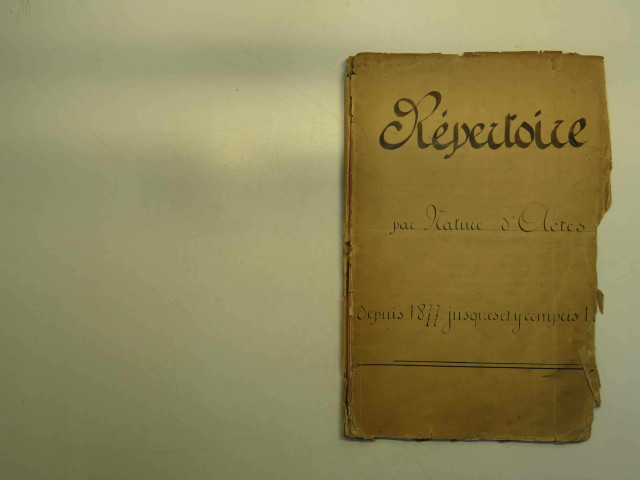 Répertoire
par Nature d'Actes
depuis 1877 jusques et y compris 1